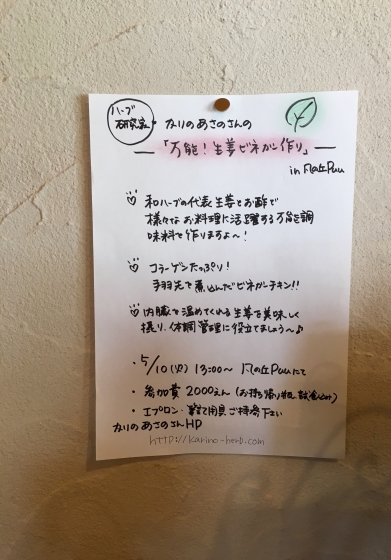 ハーブ
研究家
かりの あさのさんの
「万能！生姜ビネガー作り」
in 風の丘Puu
和ハーブの代表 生姜とお酢で
様々な お料理に活躍する万能調
味料を作りますよ〜！
コラーゲンたっぷり！
手羽先で煮込んだビネガーチキン!!
内臓を温めてくれる生姜を美味しく
摂り、体調管理に役立てましょう〜♪
・5/10(火) 13:00〜 風の丘Puuにて
・参加費 2000えん (お持ち帰り瓶、試食込み)
・エプロン・筆記用具 ご持参下さい
かりの あさのさんHP
http://karino-herb.com